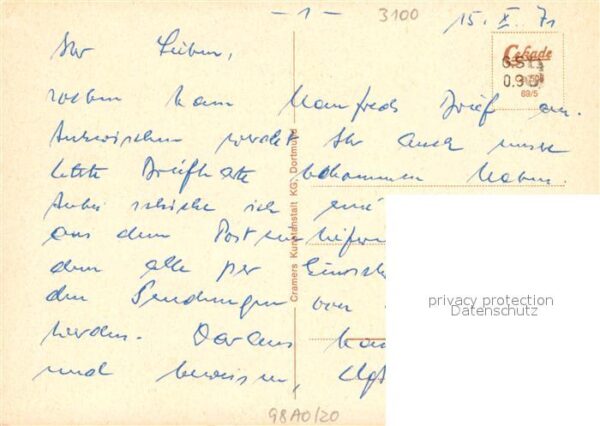 - 1 - 3100 15. X. 71
Cekade
69/5
Ihr Lieben,
soeben kam Manfreds Brief an.
Inzwischen werdet Ihr auch unsere
letzte Briefkarte bekommen haben.
Anbei schicke ich
aus dem
dem alle per
den Sendungen von
werden. Daraus
und beweisen,
Cramers Kunstanstalt KG, Dortmund
privacy protection
Datenschutz
98A0/20